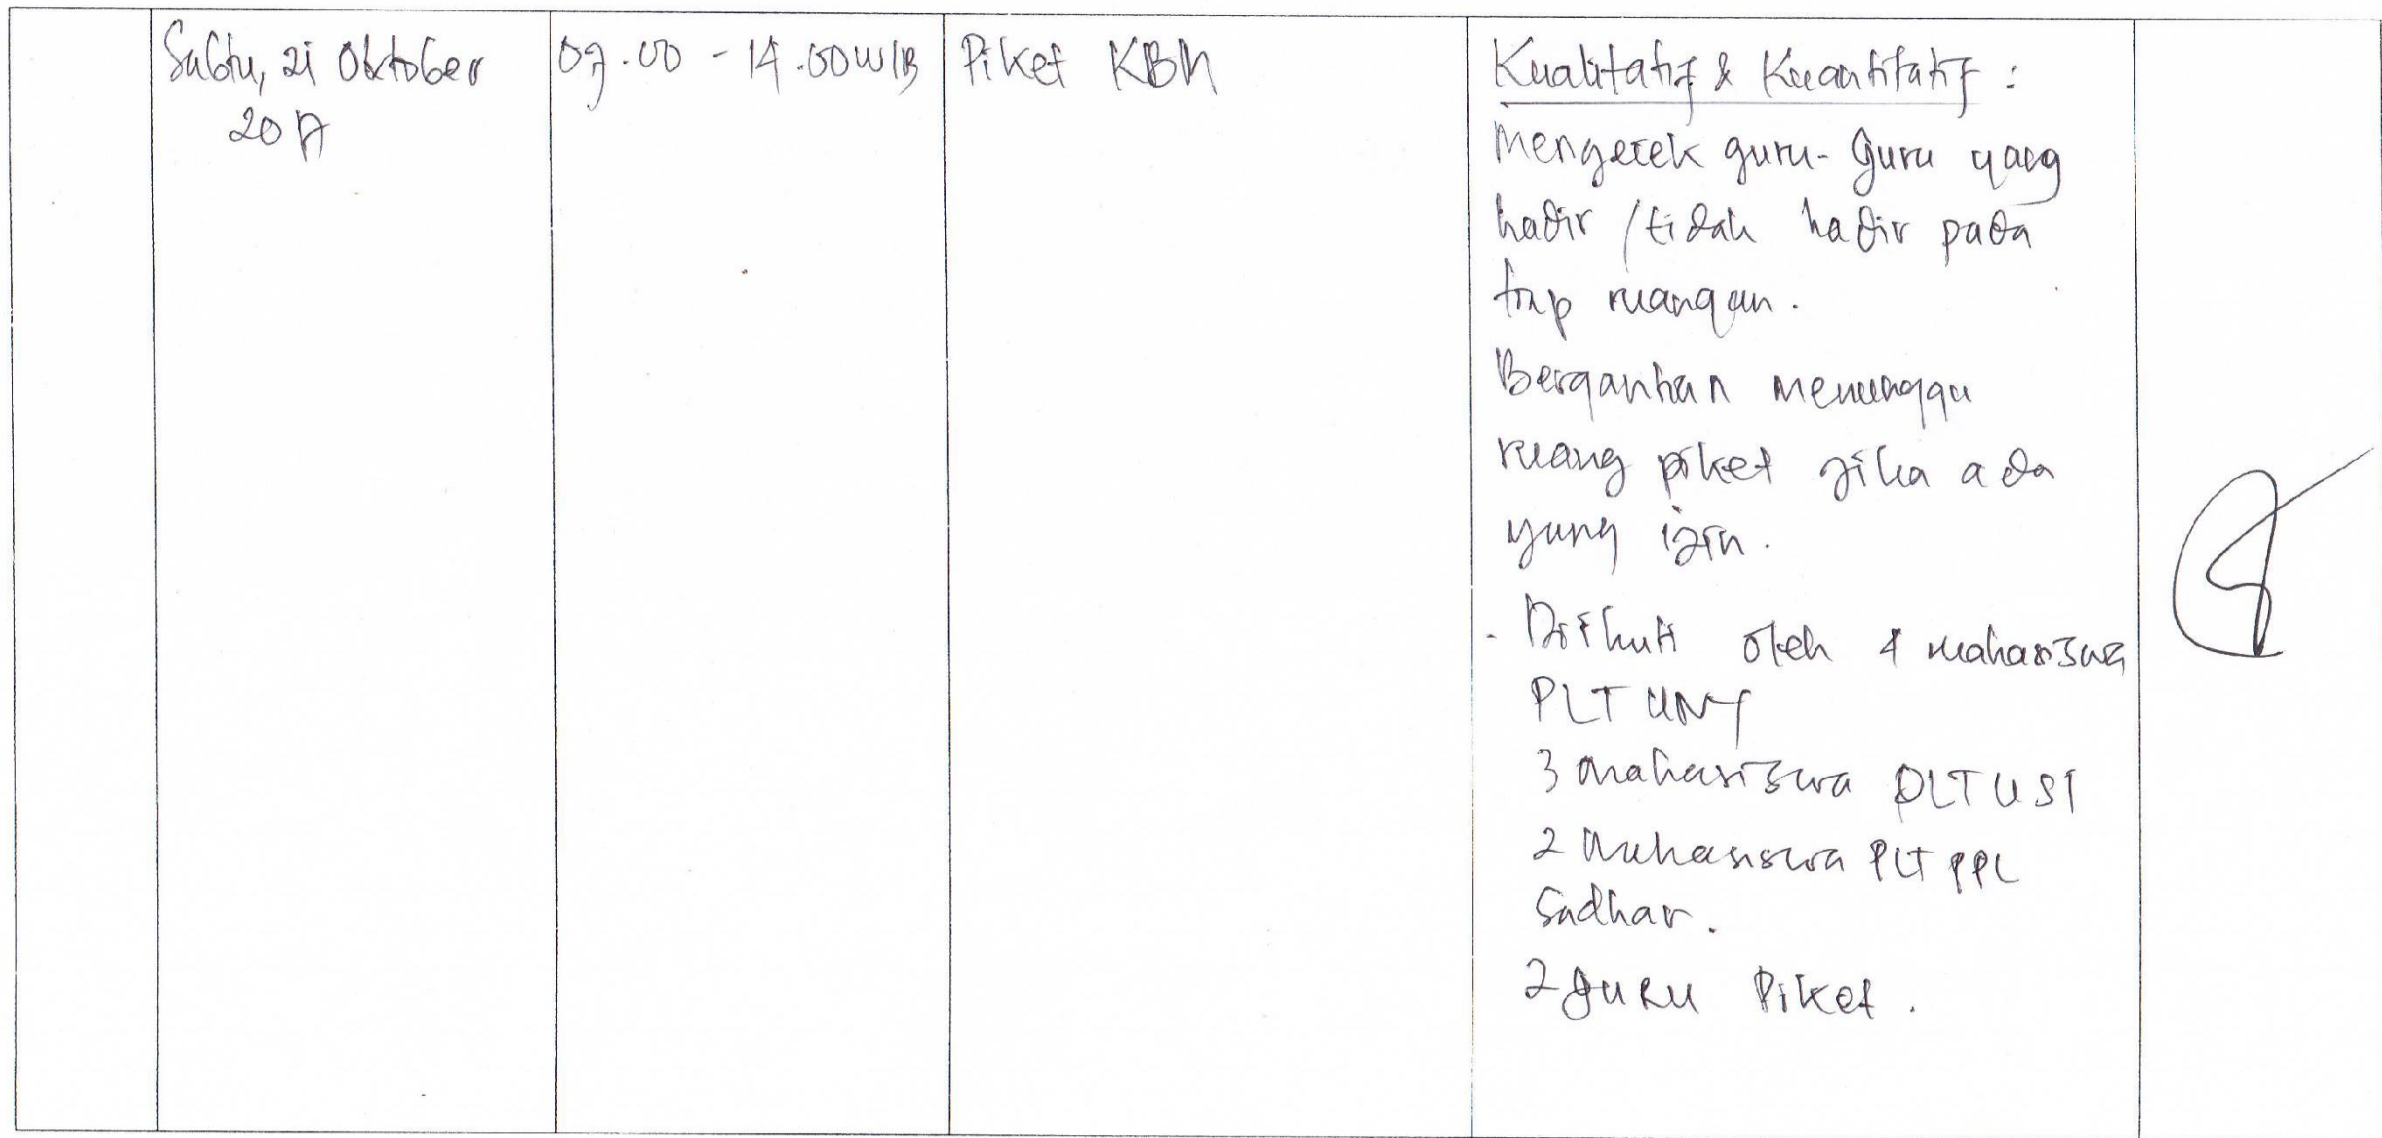 Sabtu, 21 Oktober
2017
07.00 - 14.00 WIB
Piket KBM
Kualitatif & Kuantitatif :
Mengecek guru-guru yang
hadir / tidak hadir pada
tiap ruangan.
Bergantian menunggu
ruang piket jika ada
yang izin.
- Diikuti oleh 4 mahasiswa
PLT UNY
3 mahasiswa PLT UST
2 mahasiswa PLT PPL
Sadhar.
2 guru Piket.